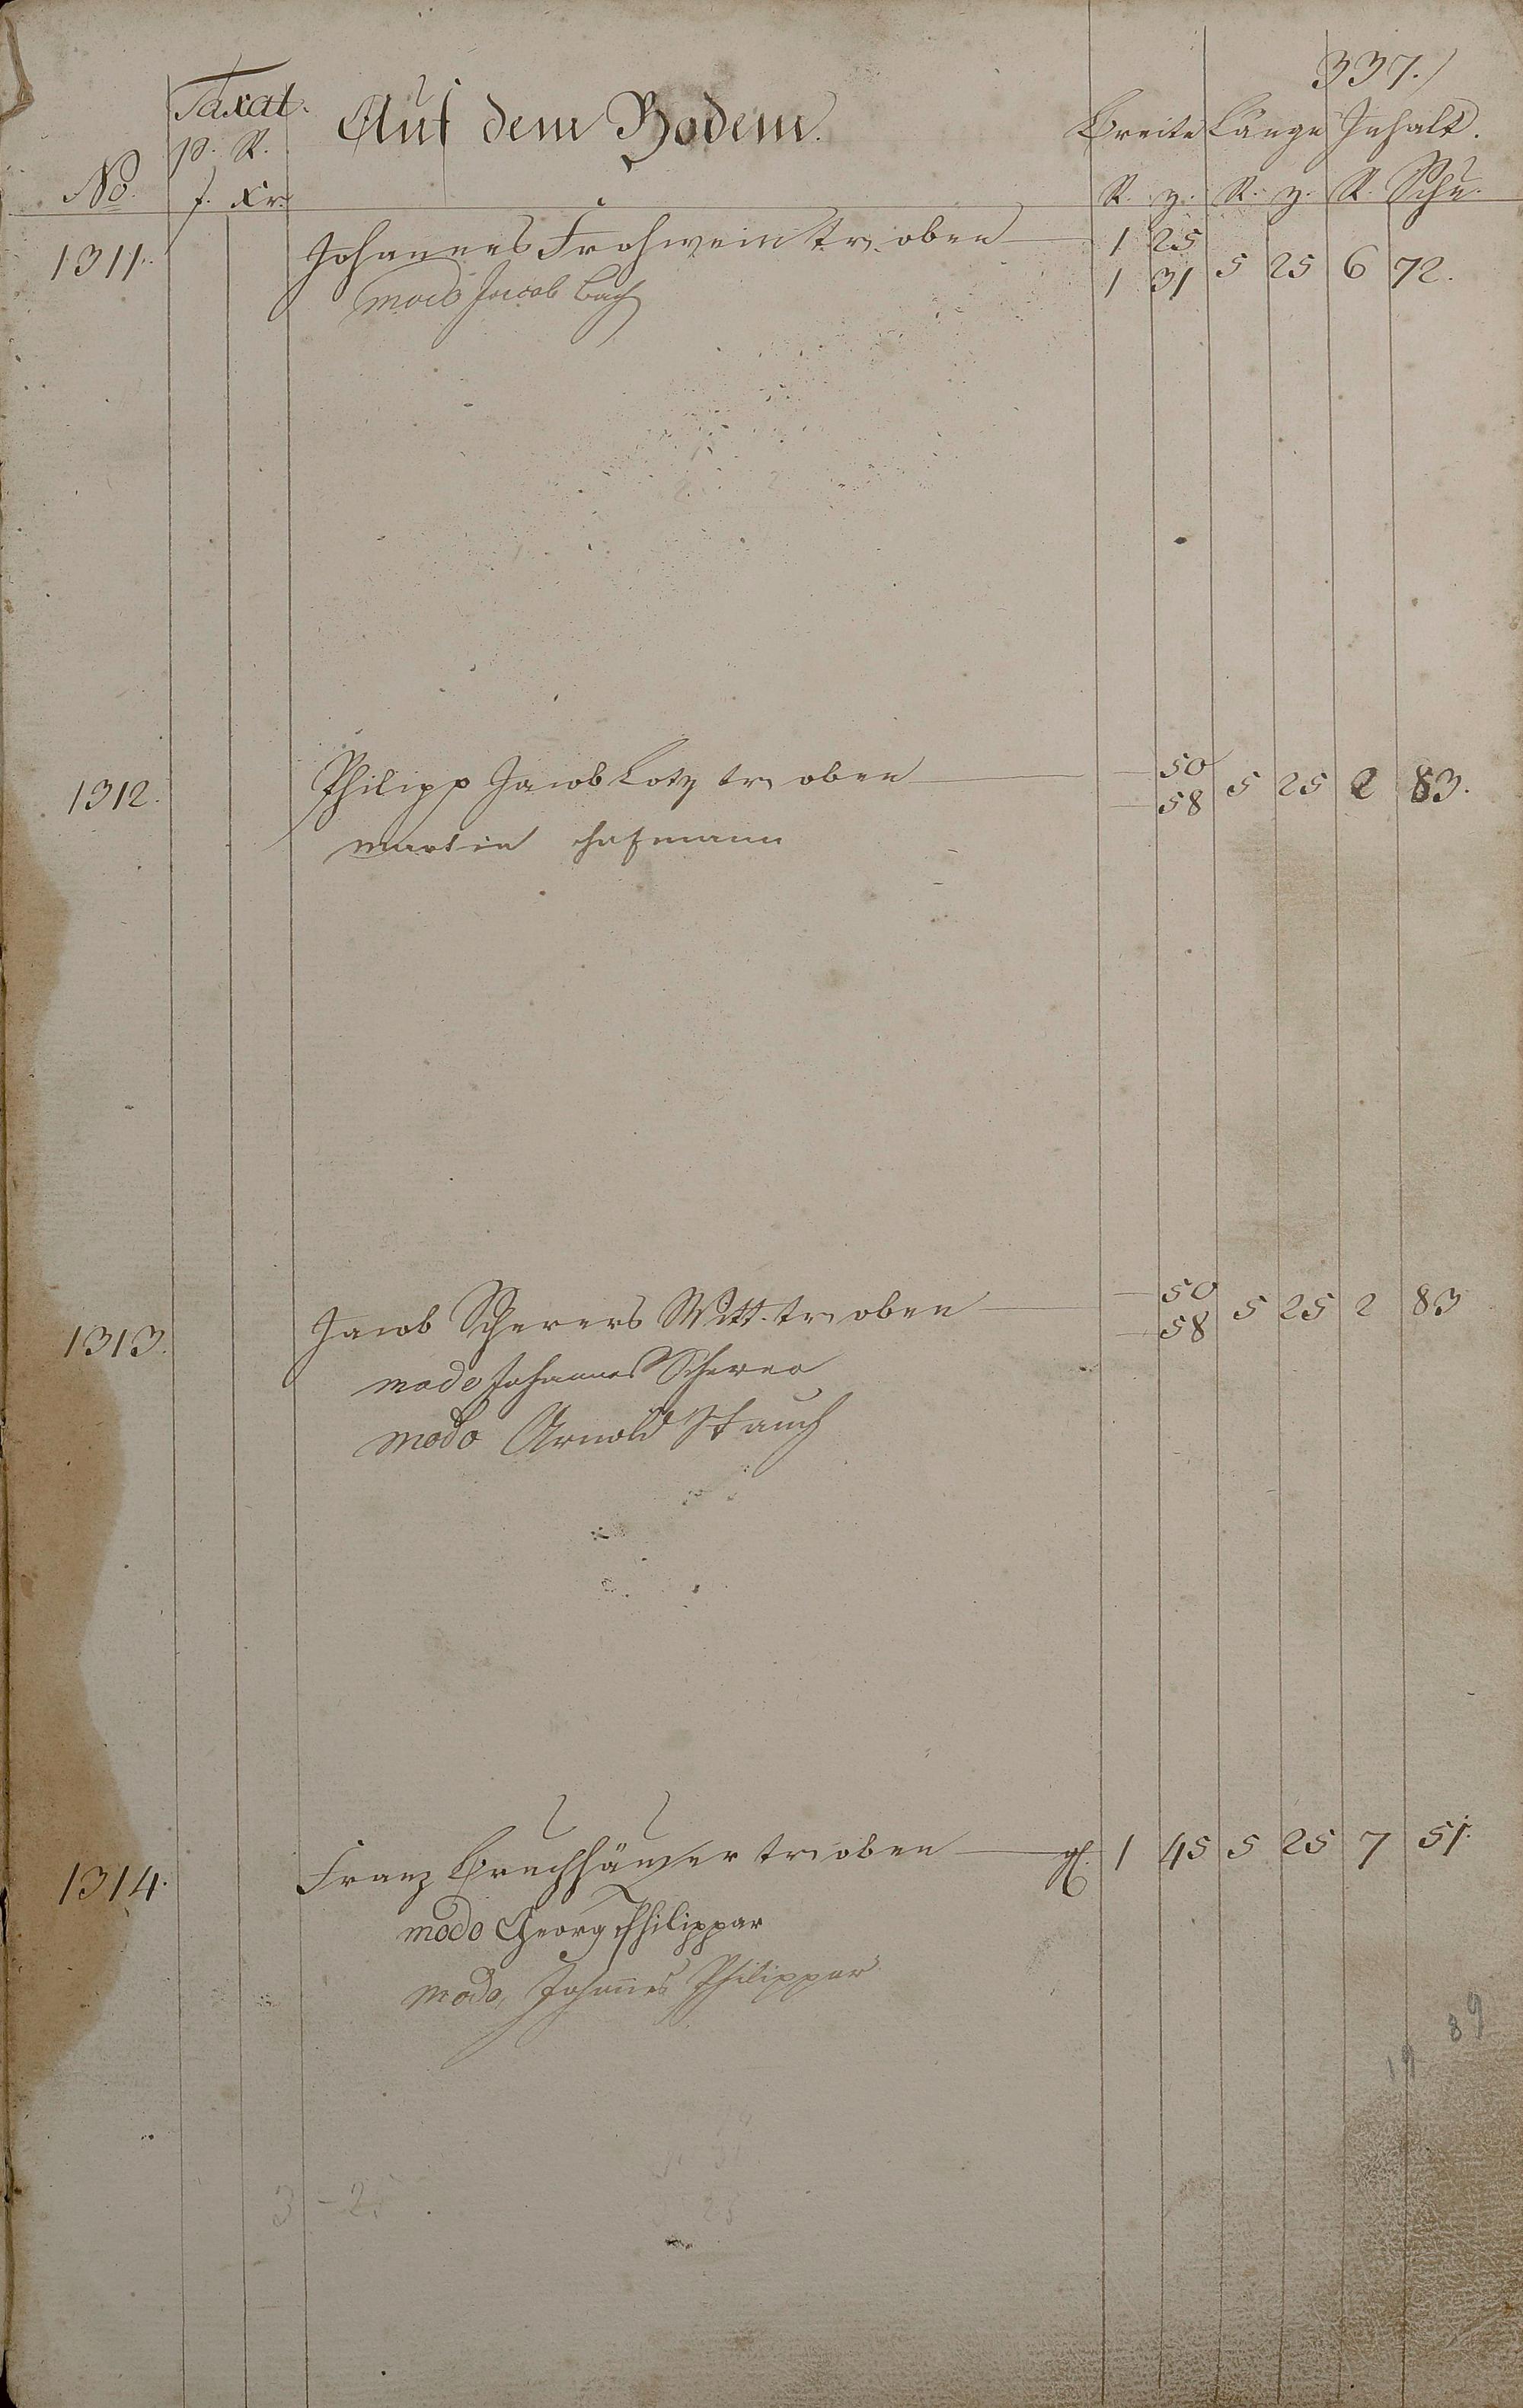 337.
Taxat. Auf dem Bodem. Breite Länge Inhalt.
p. R.
No. f. Xr. R. z. R. z. R. Schu.
1311. Johannes Frohwein tr. oben 1 25 5 25 6 72.
1 31
modo Jacob Bach
1312. Philipp Jacob Lotz tr. oben — 50 5 25 2 83.
— 58
martin hofmann
1313. Jacob Scherers Witt. tr. oben — 50 5 25 2 83
— 58
modo Johannes Scherer
modo Arnold Stauch
1314. Franz Bruchhäuser tr. oben gl. 1 45 5 25 7 51.
modo Georg Philippar
modo, Johañes Philippar
89
19
3 - 2